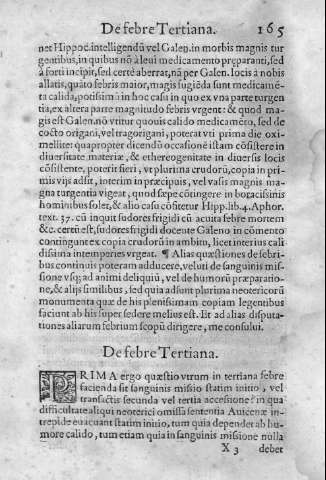 De febre Tertiana. 165
net Hippoc. intelligendū vel Galen. in morbis magnis tur
gentibus, in quibus nō à leui medicamento preparanti, sed
à forti incipir, sed certè aberrat, nā per Galen. locis à nobis
allatis, quāto febris maior, magis fugiēda sunt medicamē-
ta calida, potissimū in hoc casu in quo ex vna parte turgen
tia, ex altera parte magnitudo febris vrgent: & quod ma-
gis est Galen. nō vtitur quouis calido medicamēto, sed de
cocto origani, vel tragorigani, poterat vti prima die oxi-
mellite: quapropter dicendū occasionē istam cōsistere in
diuersitate materiæ, & ethereogenitate in diuersis locis
cōsistente, poterit fieri, vt plurima crudorū, copia in pri-
mis vijs adsit, interim in præcipuis, vel vasis magnis ma-
gna turgentia vigeat, quod sæpe cōtingere in boracissimis
hominibus solet, & alio casu cōfitetur Hipp. lib. 4. Aphor.
text. 37. cū inquit sudores frigidi cū acuta febre mortem
&c. certū est, sudores frigidi docente Galeno in cōmento
contingunt ex copia crudorū in ambitu, licet interius cali
dissima intemperies vrgeat. ¶ Alias quæstiones de febri-
bus continuis poteram adducere, veluti de sanguinis mis-
sione vsq; ad animi deliquiū, vel de humorū præparatio-
ne, & alijs similibus, sed quia adsunt plurima neotericorū
monumenta quæ de his plenissimam copiam legentibus
faciunt ab his super sedere melius est. Et ad alias disputa-
tiones aliarum febrium scopū dirigere, me consului.
De febre Tertiana.
PRIMA ergo quæstio vtrum in tertiana febre
facienda sit sanguinis missio statim initio, vel
transactis secunda vel tertia accessione? in qua
difficultate aliqui neoterici omissa sententia Auicenæ in-
trepide euacuant statim initio, tum quia dependet ab hu-
more calido, tum etiam quia in sanguinis missione nulla
X 3 debet